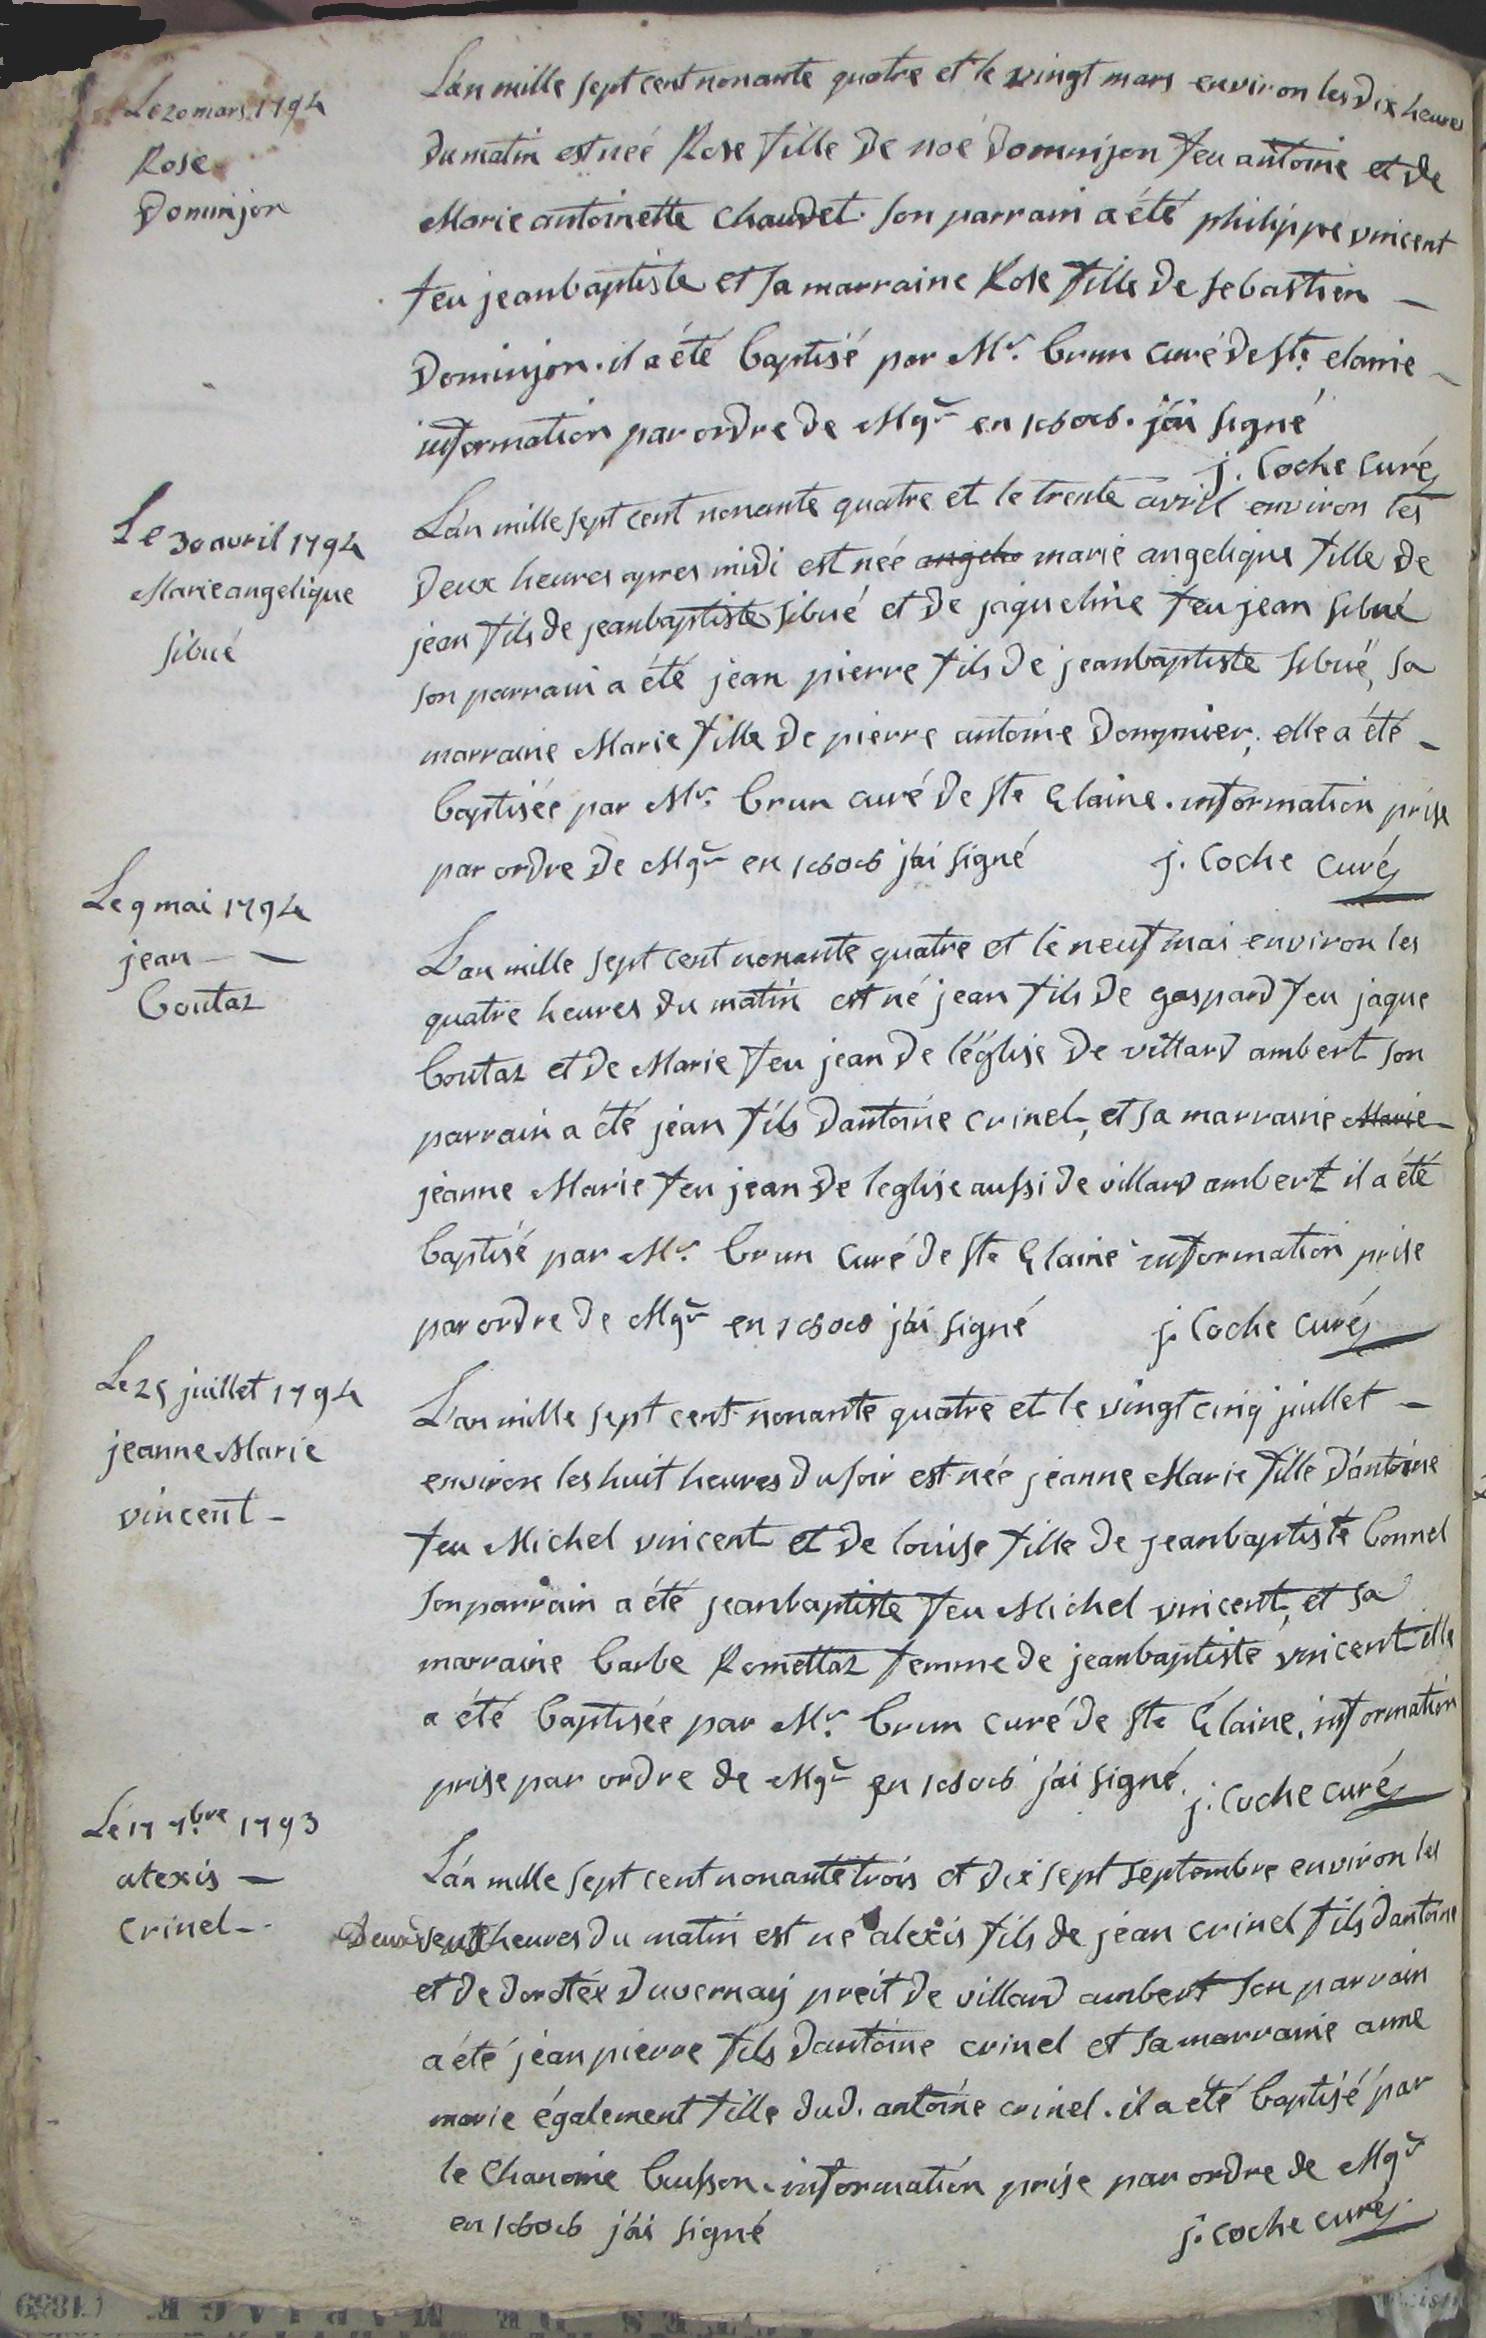 Le 20 mars 1794
Rose
Dominjon
L'an mille sept cent nonante quatre et le vingt mars environ les dix heures
du matin est née Rose fille de noé Dominjon feu antoine et de
Marie antoinette Chaudet. son parrain a été philippe vincent
feu jeanbaptiste et sa marraine Rose fille de sebastien –
Dominjon. il a été baptisé par Mr. brun curé de ste. elaine –
information par ordre de Mgr en 1806. j'ai signé
j. Coche curé
Le 30 avril 1794
Marie angelique
sibué
L'an mille sept cent nonante quatre et le trente avril environ les
Deux heures apres midi est née marie angelique fille de
jean fils de jeanbaptiste sibué et de jaqueline feu jean sibué
son parrain a été jean pierre fils de jeanbaptiste sibué, sa
marraine Marie fille de pierre antoine Dompnier, elle a été –
baptisée par Mr. brun curé de ste Elaine. information prise
par ordre de Mgr en 1806 j'ai signé j. Coche curé
Le 9 mai 1794
jean – –
boutaz
L'an mille sept cent nonante quatre et le neuf mai environ les
quatre heures du matin est né jean fils de gaspard feu jaque
boutaz et de Marie feu jean de l'église de villard ambert son
parrain a été jean fils d'antoine crinel, et sa marraine Marie
jeanne Marie feu jean de leglise aussi de villard ambert il a été
baptisé par Mr. brun curé de ste Elaine information prise
par ordre de Mgr en 1806 j'ai signé j. Coche curé
Le 25 juillet 1794
jeanne Marie
vincent –
L'an mille sept cent nonante quatre et le vingt cinq juillet –
environ les huit heures du soir est née jeanne Marie fille d'antoine
feu Michel vincent et de louise fille de jeanbaptiste bonnel
son parrain a été jeanbaptiste feu Michel vincent, et sa
marraine barbe Romettaz femme de jeanbaptiste vincent elle
a été baptisée par Mr. brun curé de ste Elaine. information
prise par ordre de Mgr en 1806 j'ai signé. j. Coche curé
Le 17 7.bre 1793
alexis –
crinel –
L'an mille sept cent nonante trois et dix sept septembre environ les
Deux heures du matin est né alexis fils de jean crinel fils dantoine
et de dorotée duvernay preit de villard ambert son parrain
a été jean pierre fils dantoine crinel et sa marraine anne
marie également fille dud. antoine crinel. il a été baptisé par
le Chanoine buisson. information prise par ordre de Mgr
en 1806 j'ai signé j. coche curé